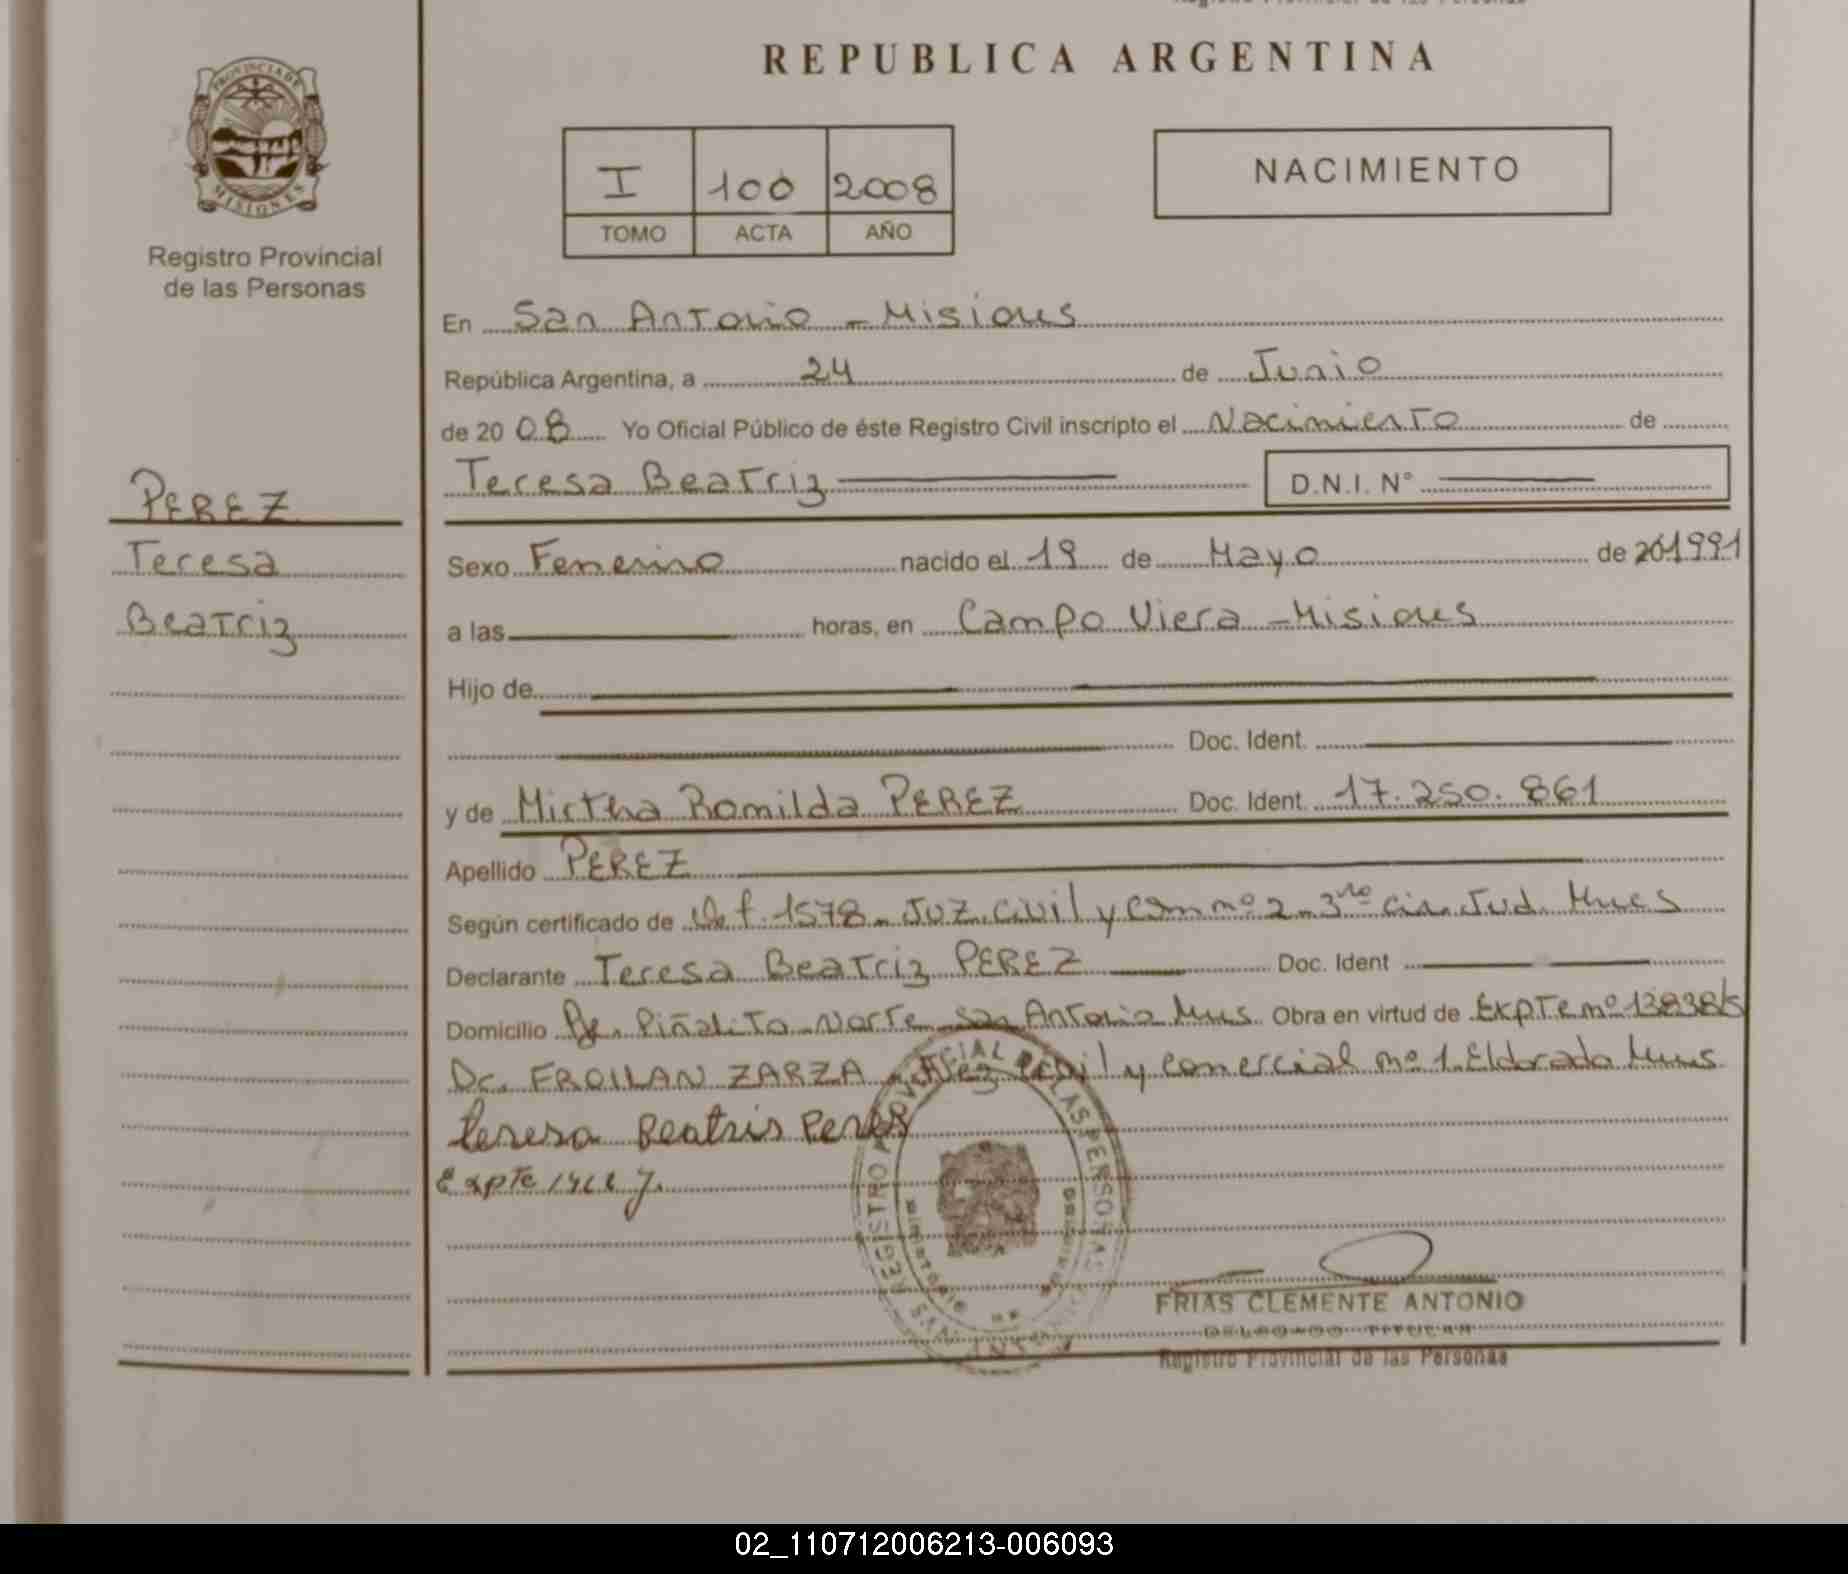 REPUBLICA ARGENTINA
PROVINCIA DE
MISIONES
Registro Provincial
de las Personas
I 100 2008
TOMO ACTA AÑO
NACIMIENTO
En San Antonio - Misiones
República Argentina, a 24 de Junio
de 20 08 Yo Oficial Público de éste Registro Civil inscripto el Nacimiento de
Teresa Beatriz D.N.I. N°
PEREZ
Teresa
Beatriz
Sexo Femenino nacido el 19 de Mayo de 201991
a las horas, en Campo Viera - Misiones
Hijo de
Doc. Ident.
y de Mirtha Romilda PEREZ Doc. Ident. 17.250.861
Apellido PEREZ
Según certificado de f. 1578 - Juz. Civil y Com nº 2 - 3 cir. Jud. Mnes
Declarante Teresa Beatriz PEREZ Doc. Ident
Domicilio Piñalito Norte San Antonio Mnes. Obra en virtud de Expte nº 13838/5
Dr. FROILAN ZARZA Juez Civil y comercial nº 1. Eldorado Mnes
teresa Beatris Peres
Expte
REGISTRO PROVINCIAL DE LAS PERSONAS
SAN ANTONIO
FRIAS CLEMENTE ANTONIO
DELEGADO TITULAR
Registro Provincial de las Personas
02_110712006213-006093